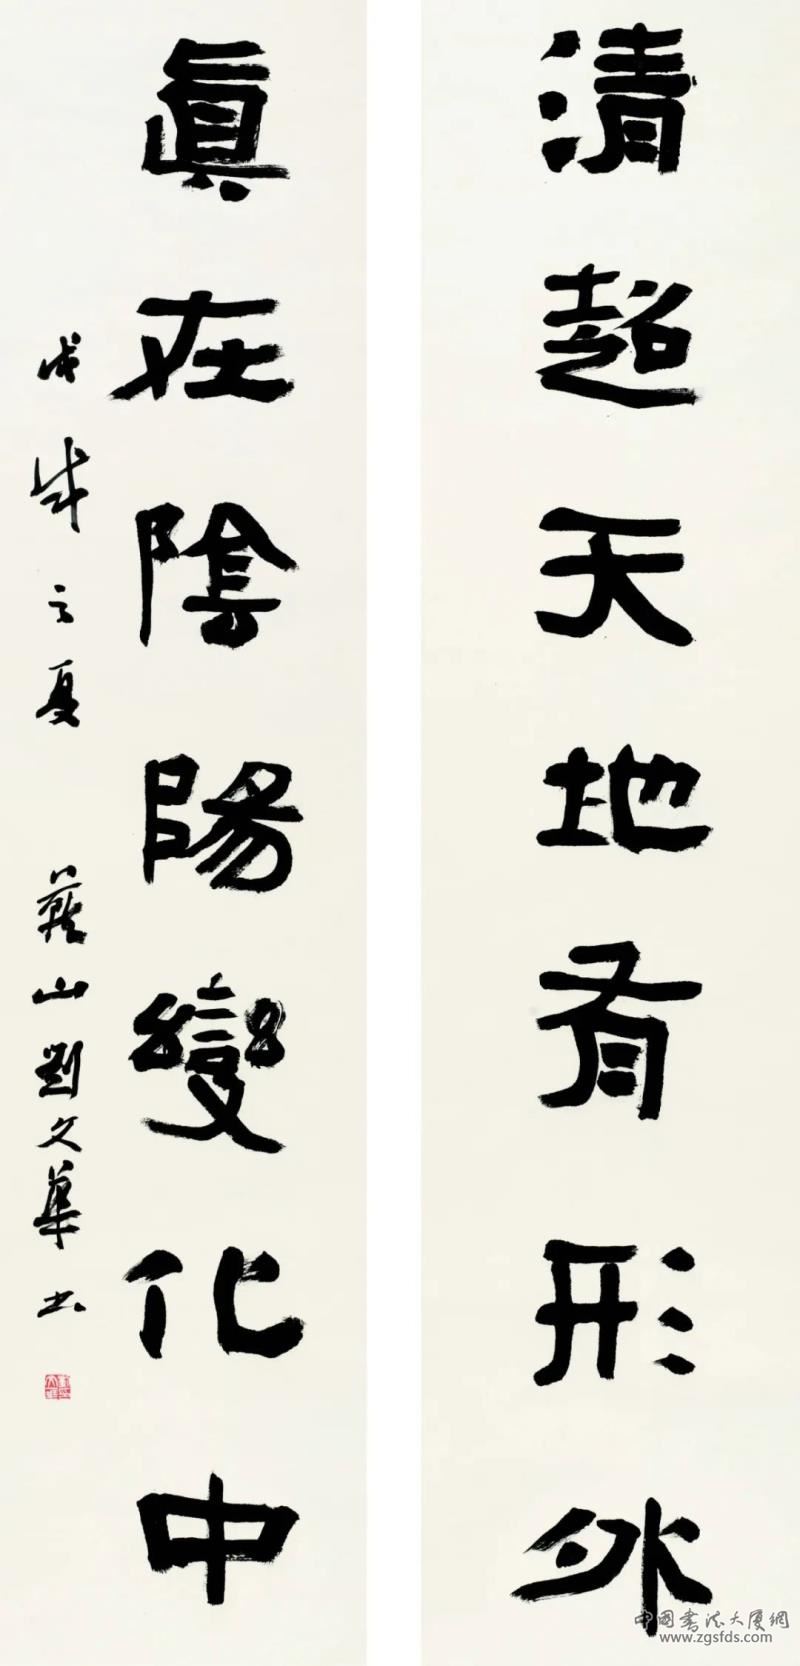 清超天地有形外
真在陰陽變化中
戊戌之夏 蘄山劉文華書
中國書法大廈網
www.zgsfds.com